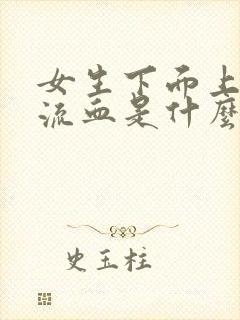 女生下而上
流血是什麼
史玉柱